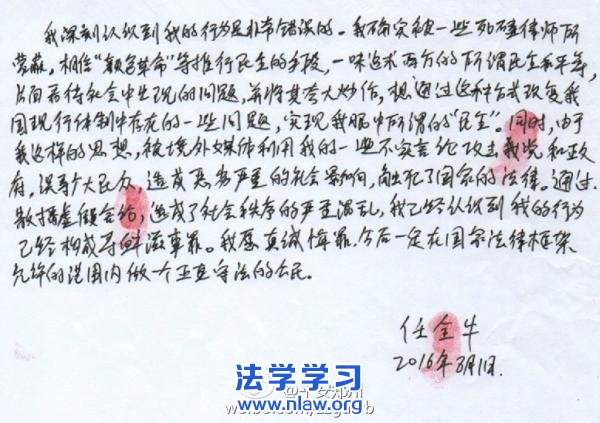 我深刻认识到我的行为是非常错误的。我确实被一些死磕律师所
蒙蔽，相信“颜色革命”等推行民主的手段，一味追求西方的所谓民主和平等，
片面看待社会中出现的问题，并将其夸大炒作，想通过这种方式改变我
国现行体制中存在的一些问题，实现我眼中所谓的“民主”。同时，由于
我这样的思想，被境外媒体利用我的一些不实言论攻击我党和政
府，误导广大民众，造成恶劣严重的社会影响，触犯了国家的法律。通过
散播虚假言论，造成了社会秩序的严重混乱，我已经认识到我的行为
已经构成寻衅滋事罪。我愿真诚悔罪，今后一定在国家法律框架
允许的范围内做一个正直守法的公民。
任全牛
2016年8月1日.
法学学习
www.nlaw.org
@平安郑州
weibo.com/zzgafb